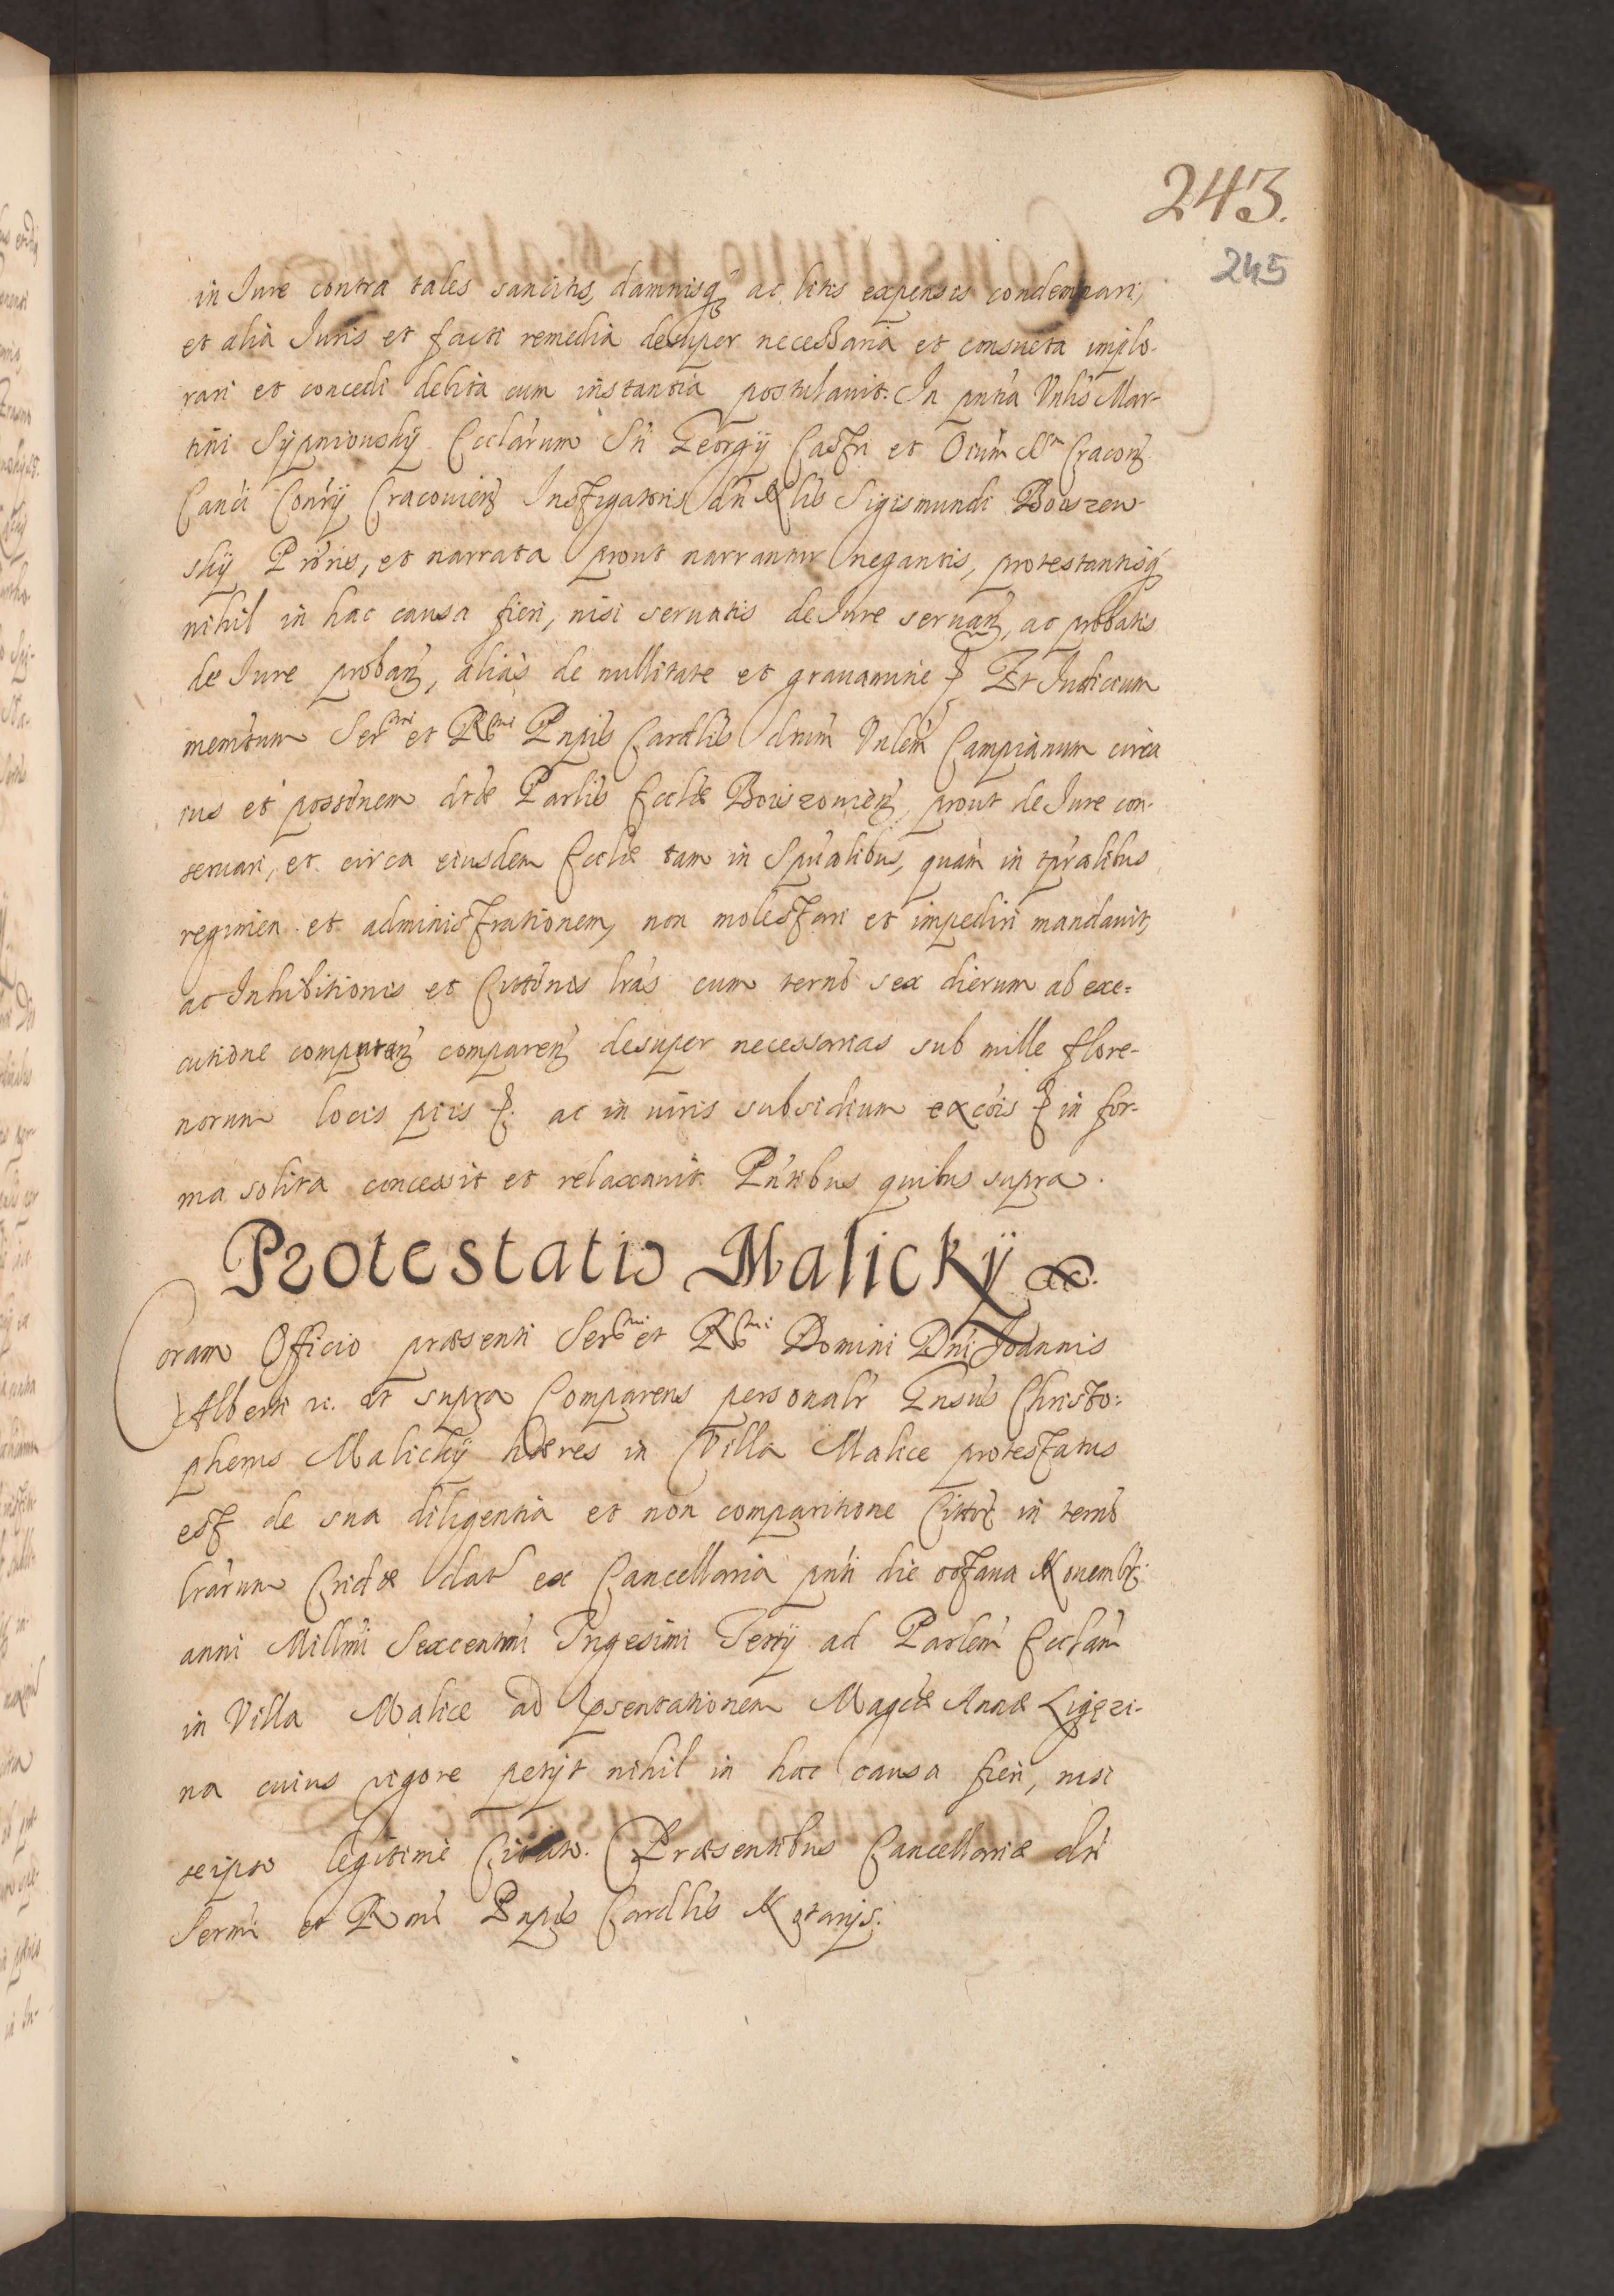 243.
245
in Jure contra tales sancitis, damnisq3 ac litis expensis condemnari,
et alia Juris et facti remedia desuper necessaria et consueta implo-
rari et concedi debita cum instantia postulavit. In pntia Vnlis Mar-
tini Sypniowsky Ecclarum Sti Georgij Castri et Oium Str Cracon
Canci Conrij Cracouien Instigatoris Sigismundi Boiszow-
skij Prioris, et narrata prout narrantur negantis, protestantisq3
nihil in hac causa fieri, nisi servatis de Jure servan, ac probatis
de Jure proban, alias de nullitate et gravamine Et Judicium
memtum Sermi et Rmi Pnpis Cardlis dnum Vnlem Campianum circa
ius et possonem dtæ Parlis Eccliæ Boiszowien, prout de Jure con-
servari, et circa eiusdem Eccliæ tam in Spualibus, quam in tpralibus
regimen et administrationem, non molestari et impediri mandavit,
ac Inhibitionis et Cittonis lras cum termo sex dierum ab exe=
cutione computan comparen desuper necessarias sub mille flore-
norum locis piis ac in uiris subsidium excois in for-
ma solita concessit et relaxavit. Pntibus quibus supra.
Protestatio Malickij
Coram Officio præsenti Sermi et Rmi Domini Dni Joannis
Alberti ut supra Comparens personalr Gnsus Christo:
pherus Malickij hæres in Villa Malice protestatus
est de sua diligentia et non comparitione in termo
lrarum Cridæ dat ex Cancellaria pnti die octava Novembr
anni Millmi Sexcentmi Trigesimi Tertij ad Parlem Ecclam
in Villa Malice ad psentationem Magcæ Annæ Ligęzi-
na cuius vigore petijt nihil in hac causa fieri, nisi
seipso legitime Citato. Præsentibus Cancellariæ dti
Sermi et Rmi Pnpis Cardlis Notarijs.